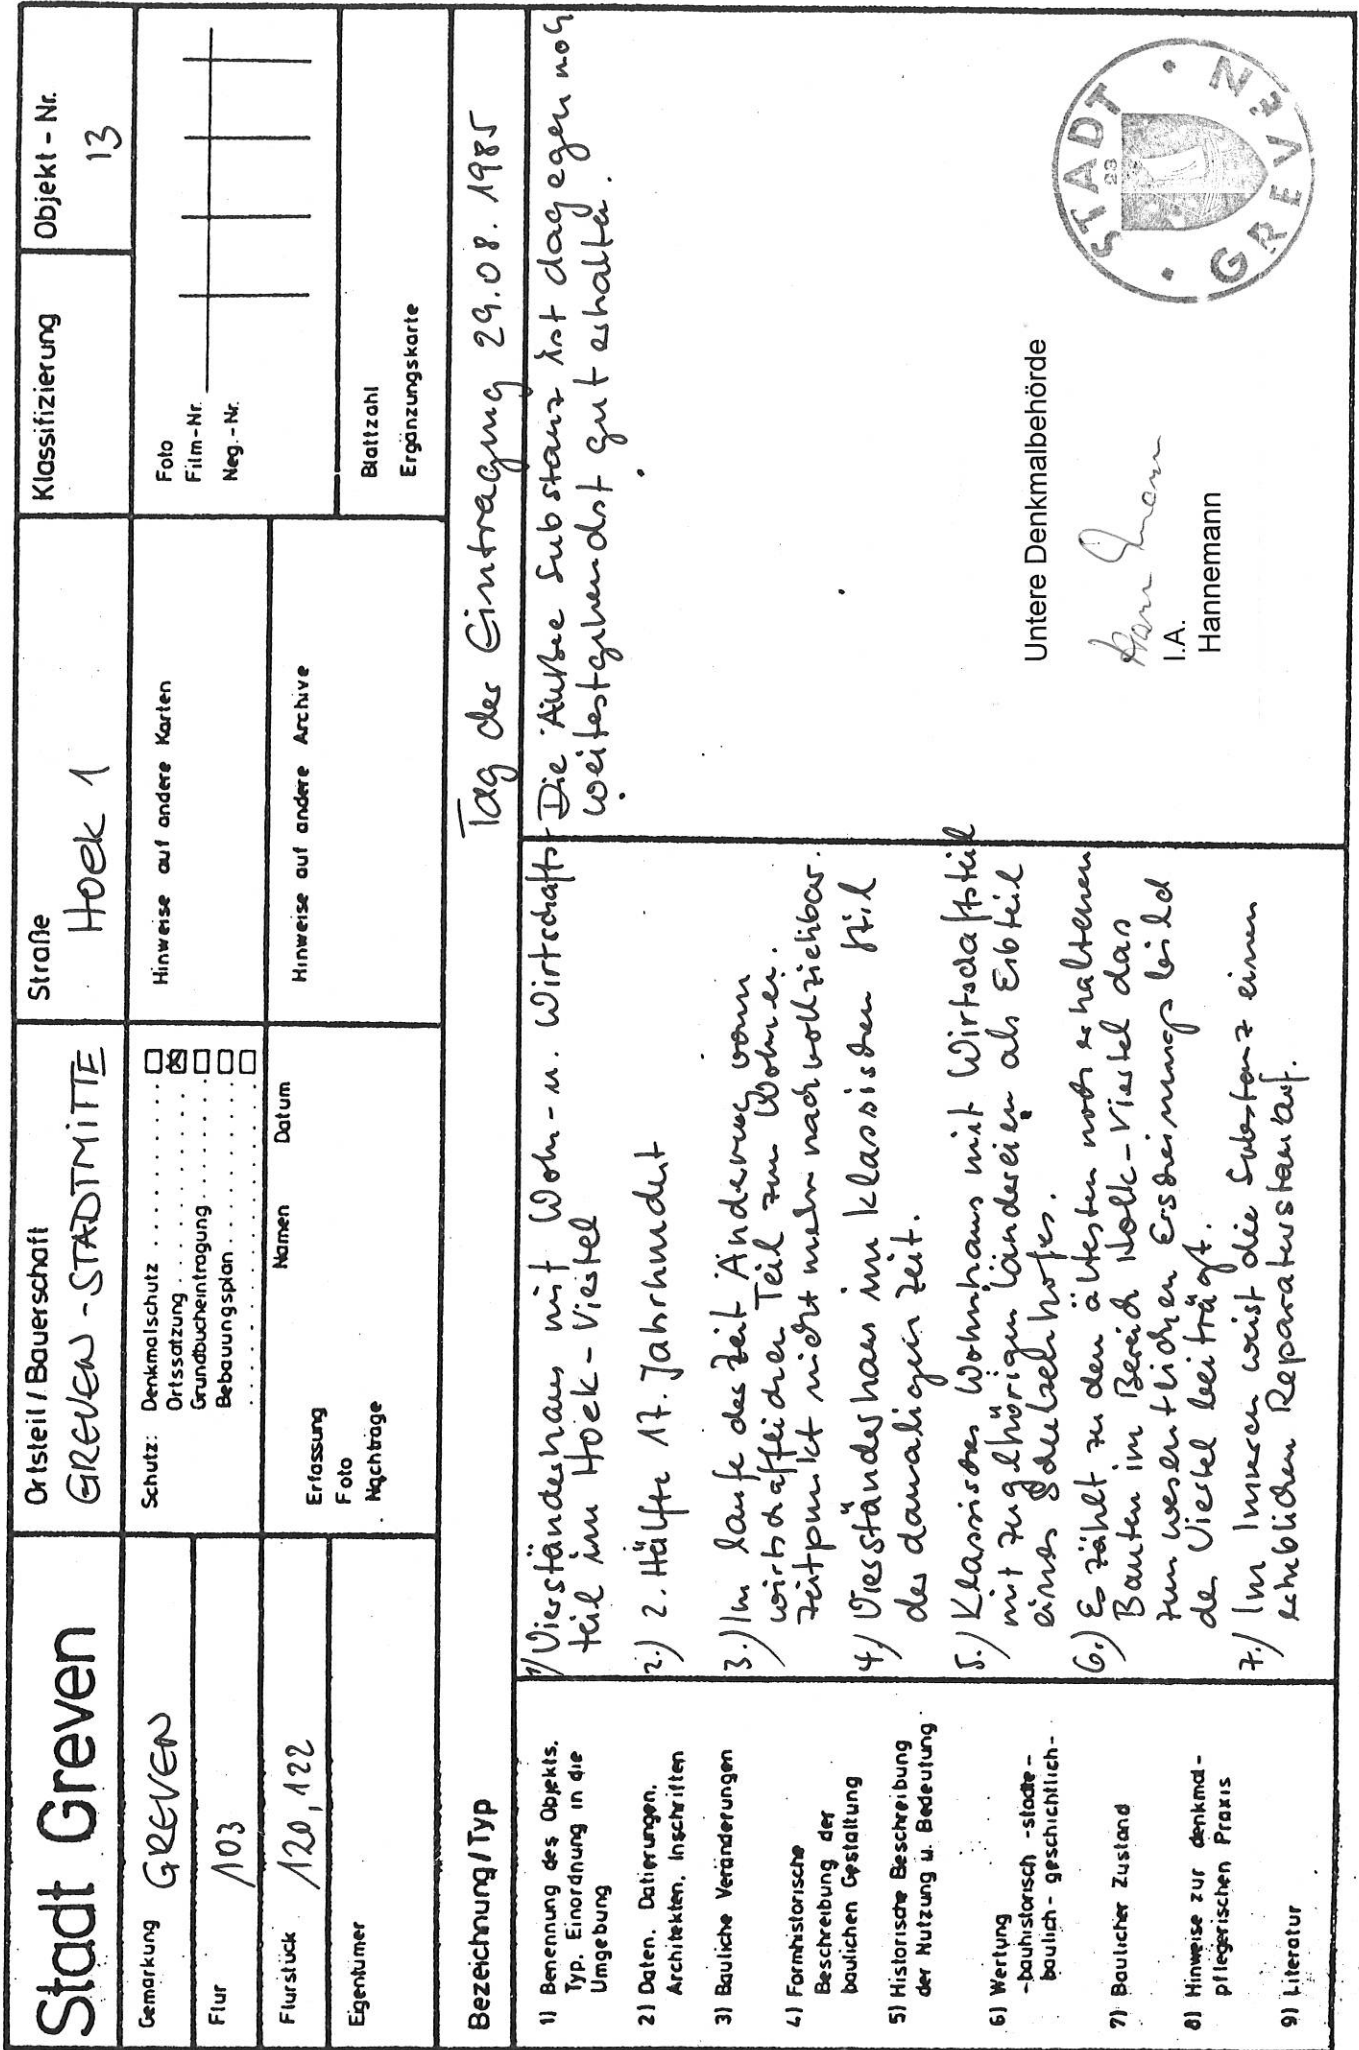 Stadt Greven
Ortsteil / Bauerschaft
GREVEN - STADTMITTE
Straße
Hoek 1
Klassifizierung
Objekt - Nr.
13
Gemarkung GREVEN
Flur 103
Flurstück 120, 122
Eigentümer
Schutz: Denkmalschutz ☐
Ortssatzung ☒
Grundbucheintragung ☐
Bebauungsplan ☐
☐
Namen Datum
Erfassung
Foto
Nachträge
Hinweise auf andere Karten
Hinweise auf andere Archive
Foto
Film-Nr.
Neg.-Nr.
Blattzahl
Ergänzungskarte
Bezeichnung / Typ
Tag der Eintragung 29.08.1985
1) Benennung des Objekts.
Typ. Einordnung in die
Umgebung
2) Daten. Datierungen.
Architekten. Inschriften
3) Bauliche Veränderungen
4) Formhistorische
Beschreibung der
baulichen Gestaltung
5) Historische Beschreibung
der Nutzung u. Bedeutung
6) Wertung
-bauhistorisch -städte-
baulich - geschichtlich-
7) Baulicher Zustand
8) Hinweise zur denkmal-
pflegerischen Praxis
9) Literatur
1/ Vierständerhaus mit Wohn- u. Wirtschafts-
teil im Hoek-Viertel
2.) 2. Hälfte 17. Jahrhundert
3.) Im Laufe der Zeit Änderung vom
wirtschaftlichen Teil zum Wohnen.
Zeitpunkt nicht mehr nachvollziehbar.
4.) Vierständerhaus im klassischen Stil
der damaligen Zeit.
5.) Klassisches Wohnhaus mit Wirtschaftsteil
mit zugehörigen Ländereien als Erbteil
eines Schulzenhofes.
6.) Es zählt zu den ältesten noch erhaltenen
Bauten im Bereich Hoek-Viertel das
zum wesentlichen Erscheinungsbild
des Viertel beiträgt.
7.) Im Inneren weist die Substanz einen
erheblichen Reparaturstau auf.
Die Äußere Substanz ist dagegen noch
weitestgehendst gut erhalten.
Untere Denkmalbehörde
I.A.
Hannemann
STADT
23
GREVEN